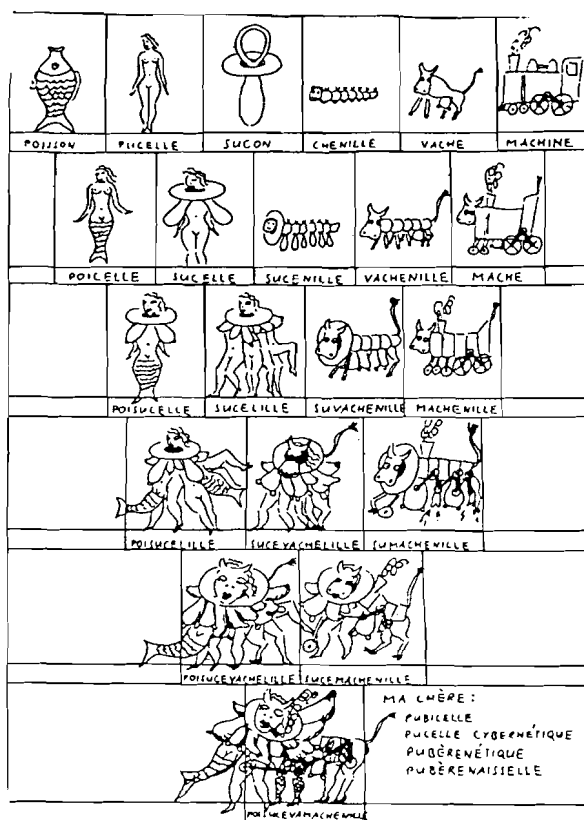 POISSON PUCELLE SUCON CHENILLE VACHE MACHINE
POICELLE SUCELLE SUCENILLE VACHENILLE MACHE
POISUCELLE SUCELILLE SUVACHENILLE MACHENILLE
POISUCELILLE SUCEVACHELILLE SUMACHENILLE
POISUCEVACHELILLE SUCEMACHENILLE
MA CHÈRE:
PUBICELLE
PUCELLE CYBERNÉTIQUE
PUBÈRENÉTIQUE
PUBÈRENAISSELLE
POISUCEVAMACHENILLE